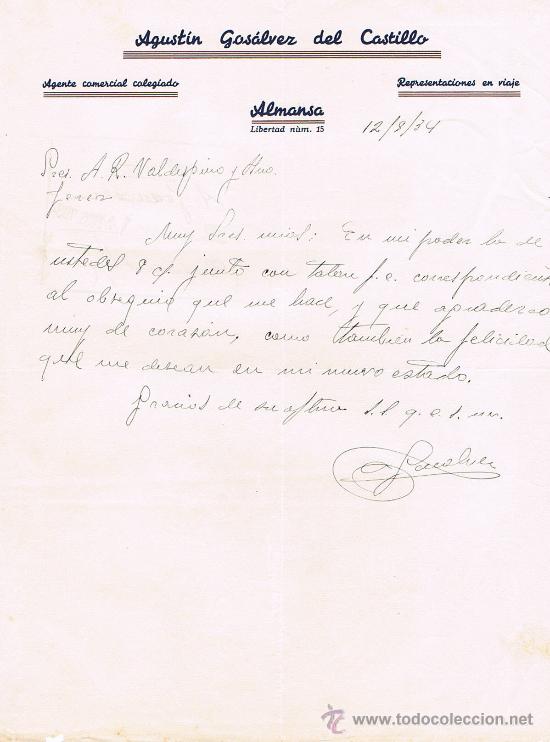 Agustín Gosálvez del Castillo
Agente comercial colegiado
Representaciones en viaje
Almansa
Libertad núm. 15
12/8/34
Sres. A. R. Valdespino y Hno.
Jerez
Muy Sres. mios: En mi poder la de
ustedes 8 c/. junto con talon f.c. correspondiente
al obsequio que me hace, y que agradezco
muy de corazón, como también la felicidad
que me desean en mi nuevo estado.
Gracias de su afmo s.s. q.e.s.m.
Gosalvez
www.todocoleccion.net